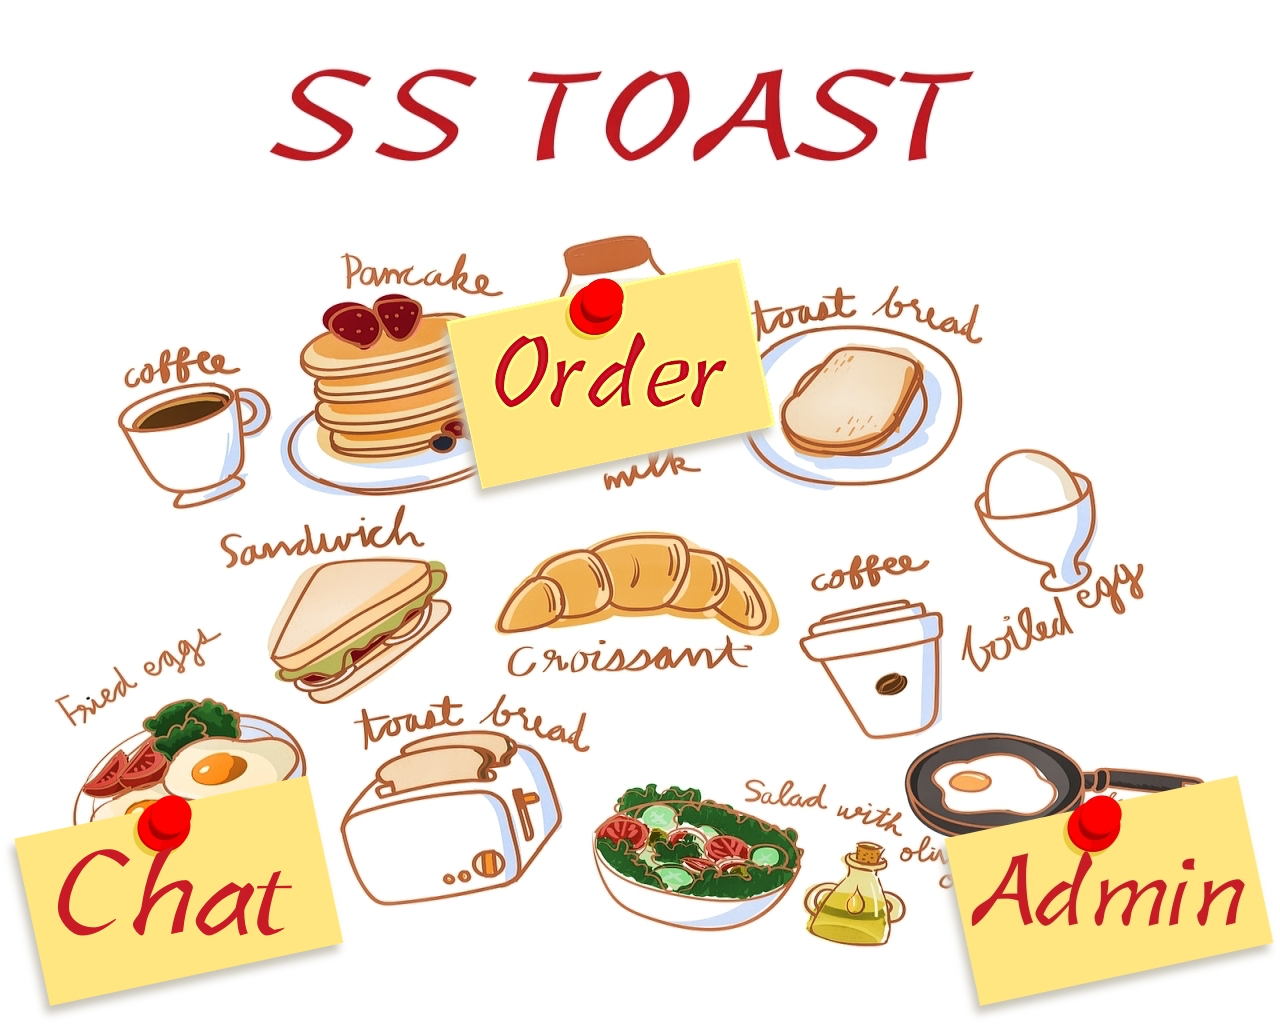 SS TOAST
Pancake
Order
toast bread
coffee
milk
Sandwich
coffee
boiled egg
Croissant
Fried eggs
toast bread
Salad with
Chat
Admin